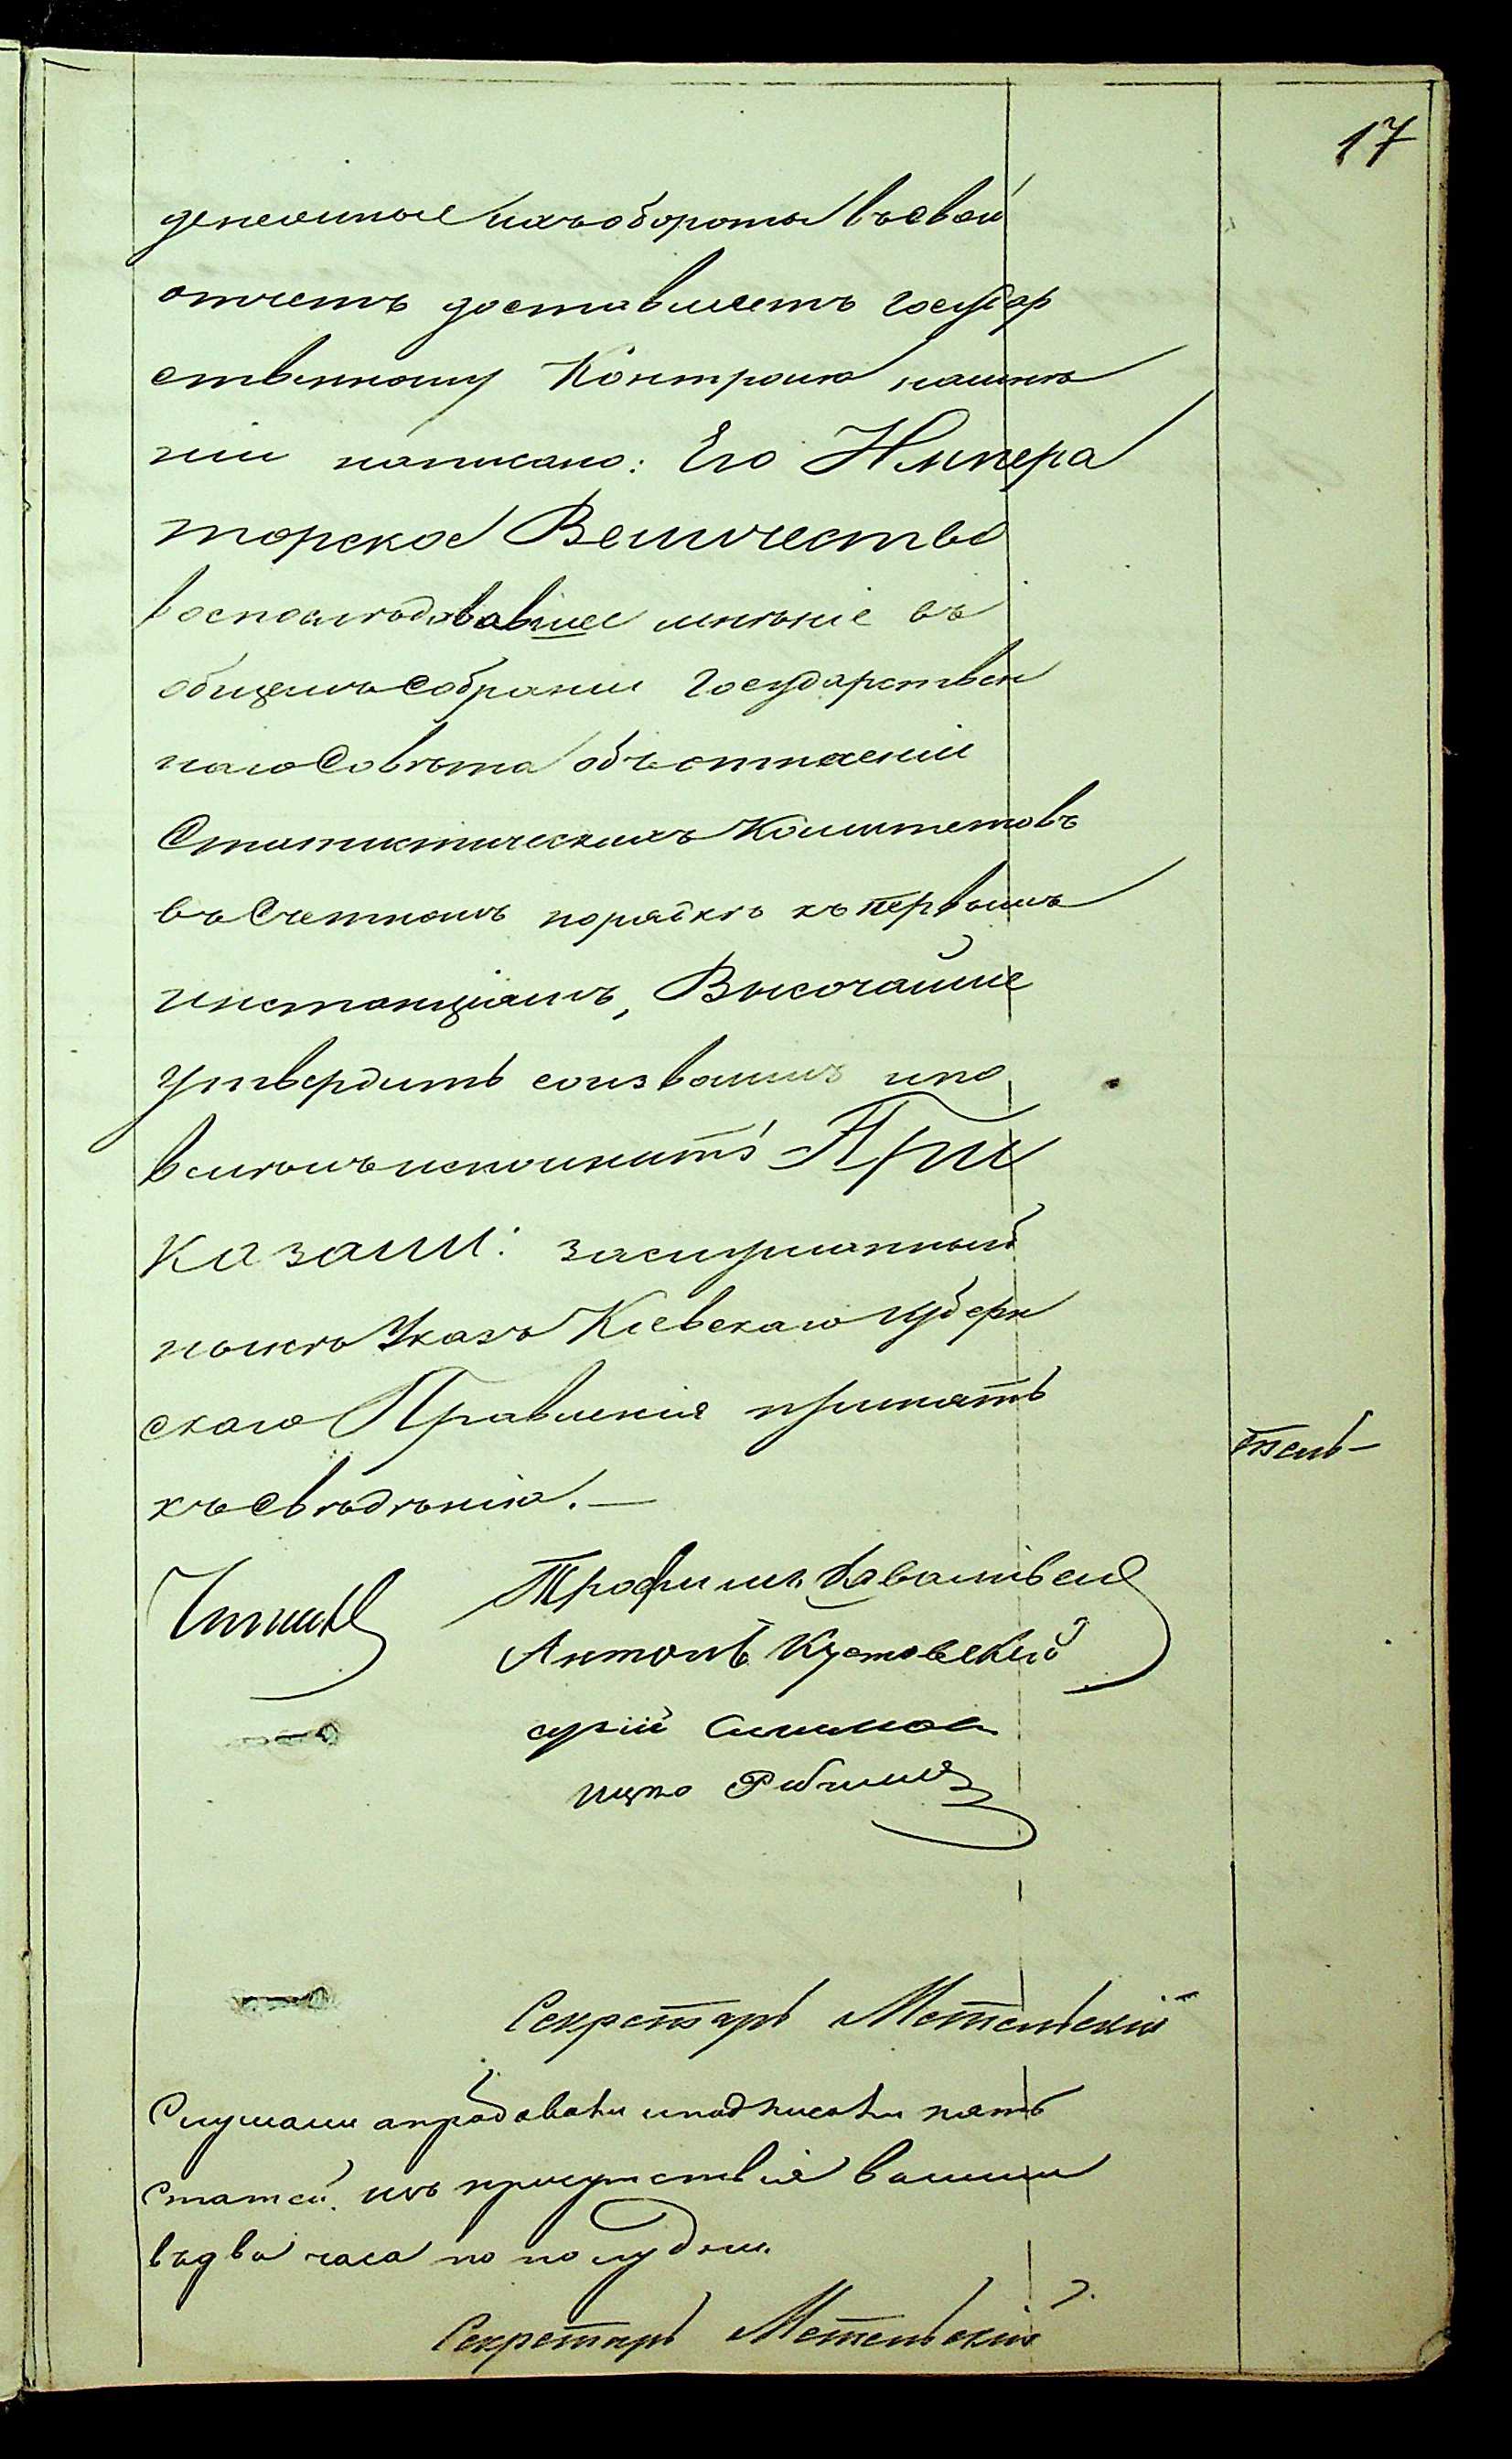 17
денежные ихъ обороты въ свой
отчетъ доставляетъ Государ
ственному Контролю, на мнѣ
ніи написано: Его Импера
торское Величество
воспослѣдовавшее мнѣніе въ
общемъ Собраніи Государствен
наго Совѣта объ отнесеніи
Статистическихъ Комитетовъ
въ Счетномъ порядкѣ къ первымъ
инстанціямъ, Высочайше
утвердить соизволилъ и по
велѣлъ исполнить При
казали: заслушанный
нынѣ Указъ Кіевскаго Губерн
скаго Правленія принять
къ Свѣдѣнію. —
Трофимъ
Антонъ Кустовскій
Секретарь Метельскій
Слушали апробовали и подписали пять
статей. изъ присутствія вышли
въ два часа по полудни.
Секретарь Метельскій